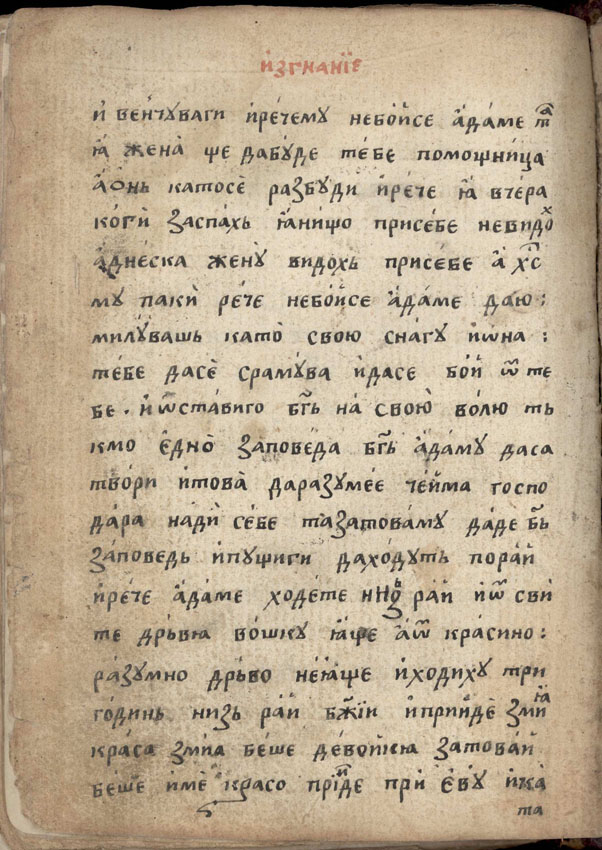 и҆згнанїе
и҆ венчуваги и҆речему небо́йсе а҆да́ме та̀
ꙗ҆ жена̀ ще дабу́де те́бе помощни́ца
а҆ѻ҆нь катосѐ разбуди и҆ре́че ꙗ҆ вчера
ко́ги̇̀ заспа́хь ꙗ҆нищо присе́бе невидоⷯ
а҆дне́ска жену̀ видохь присе́бе а҆ хс҃
му паки̇̀ ре́че небо́йсе а҆да́ме даю :
милу́вашь като̀ свою снагу и҆ѡна :
те́бе дасѐ срамува и҆дасе бо́й ѿ те
бе . и҆ѿставиго бг҃ь на свою̀ во́лю ть
кмо є҆дно̀ запове́да бг҃ь а҆да́му даса
тво́ри и҆това̀ даразуме́е че́йма госпо
да́ра нади̇̀ се́бе тазатова́му даде бг҃ь
за́поведь и҆пущиги даходуть порай
и҆ре́че а҆да́ме ходе́те низ рай и҆ѿ сви
те дрьвꙗ во́шку ꙗ҆ще а҆ѿ красино :
разумно дрьво неꙗ҆ще и҆ходиху три
го́динь низь рай бж҃їи и҆прийдѐ змиꙗ҆
кра́са змиа беше дево́йкꙗ затова́й
бе́ше и҆мѐ красо прїи́де при є҆ву и҆ка
та